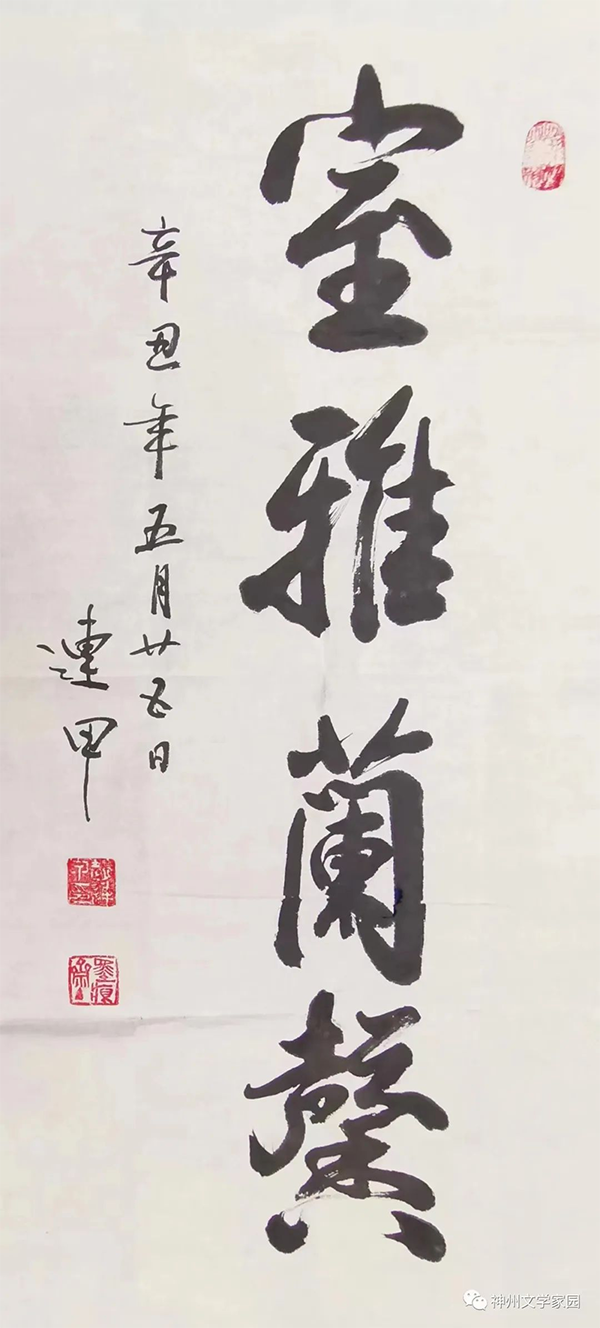 室雅蘭馨
辛丑年五月廿五日
連甲
神州文学家园